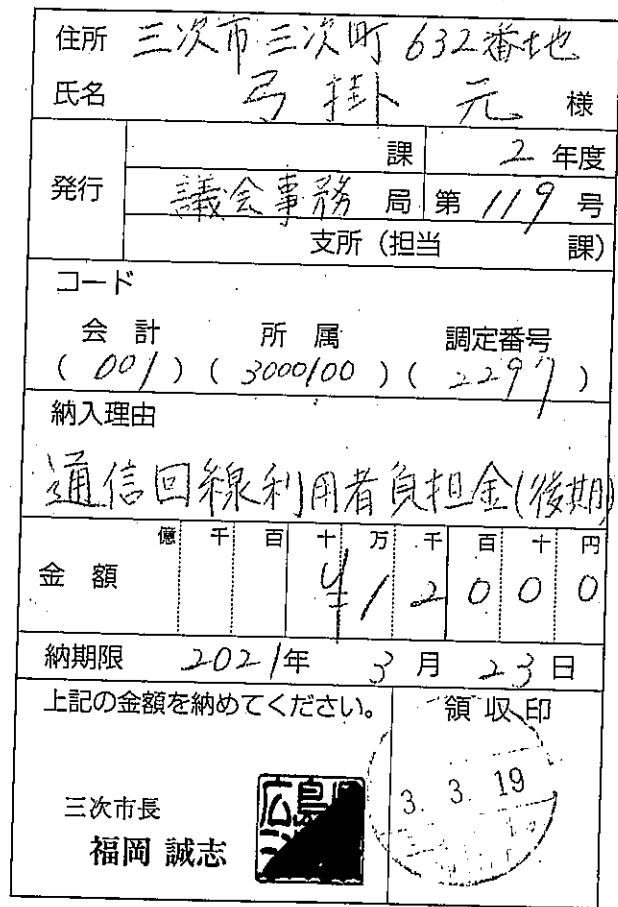 住所 三次市三次町632番地
氏名 弓掛 元 様
発行
課 2年度
議会事務局 第119号
支所(担当 課)
コード
会計 所属 調定番号
(001)(3000100)(2297)
納入理由
通信回線利用者負担金(後期)
億千百十万千百十円
金額 ¥12000
納期限 2021年3月23日
上記の金額を納めてください。
領収印
3. 3. 19
三次市長
福岡 誠志
広島